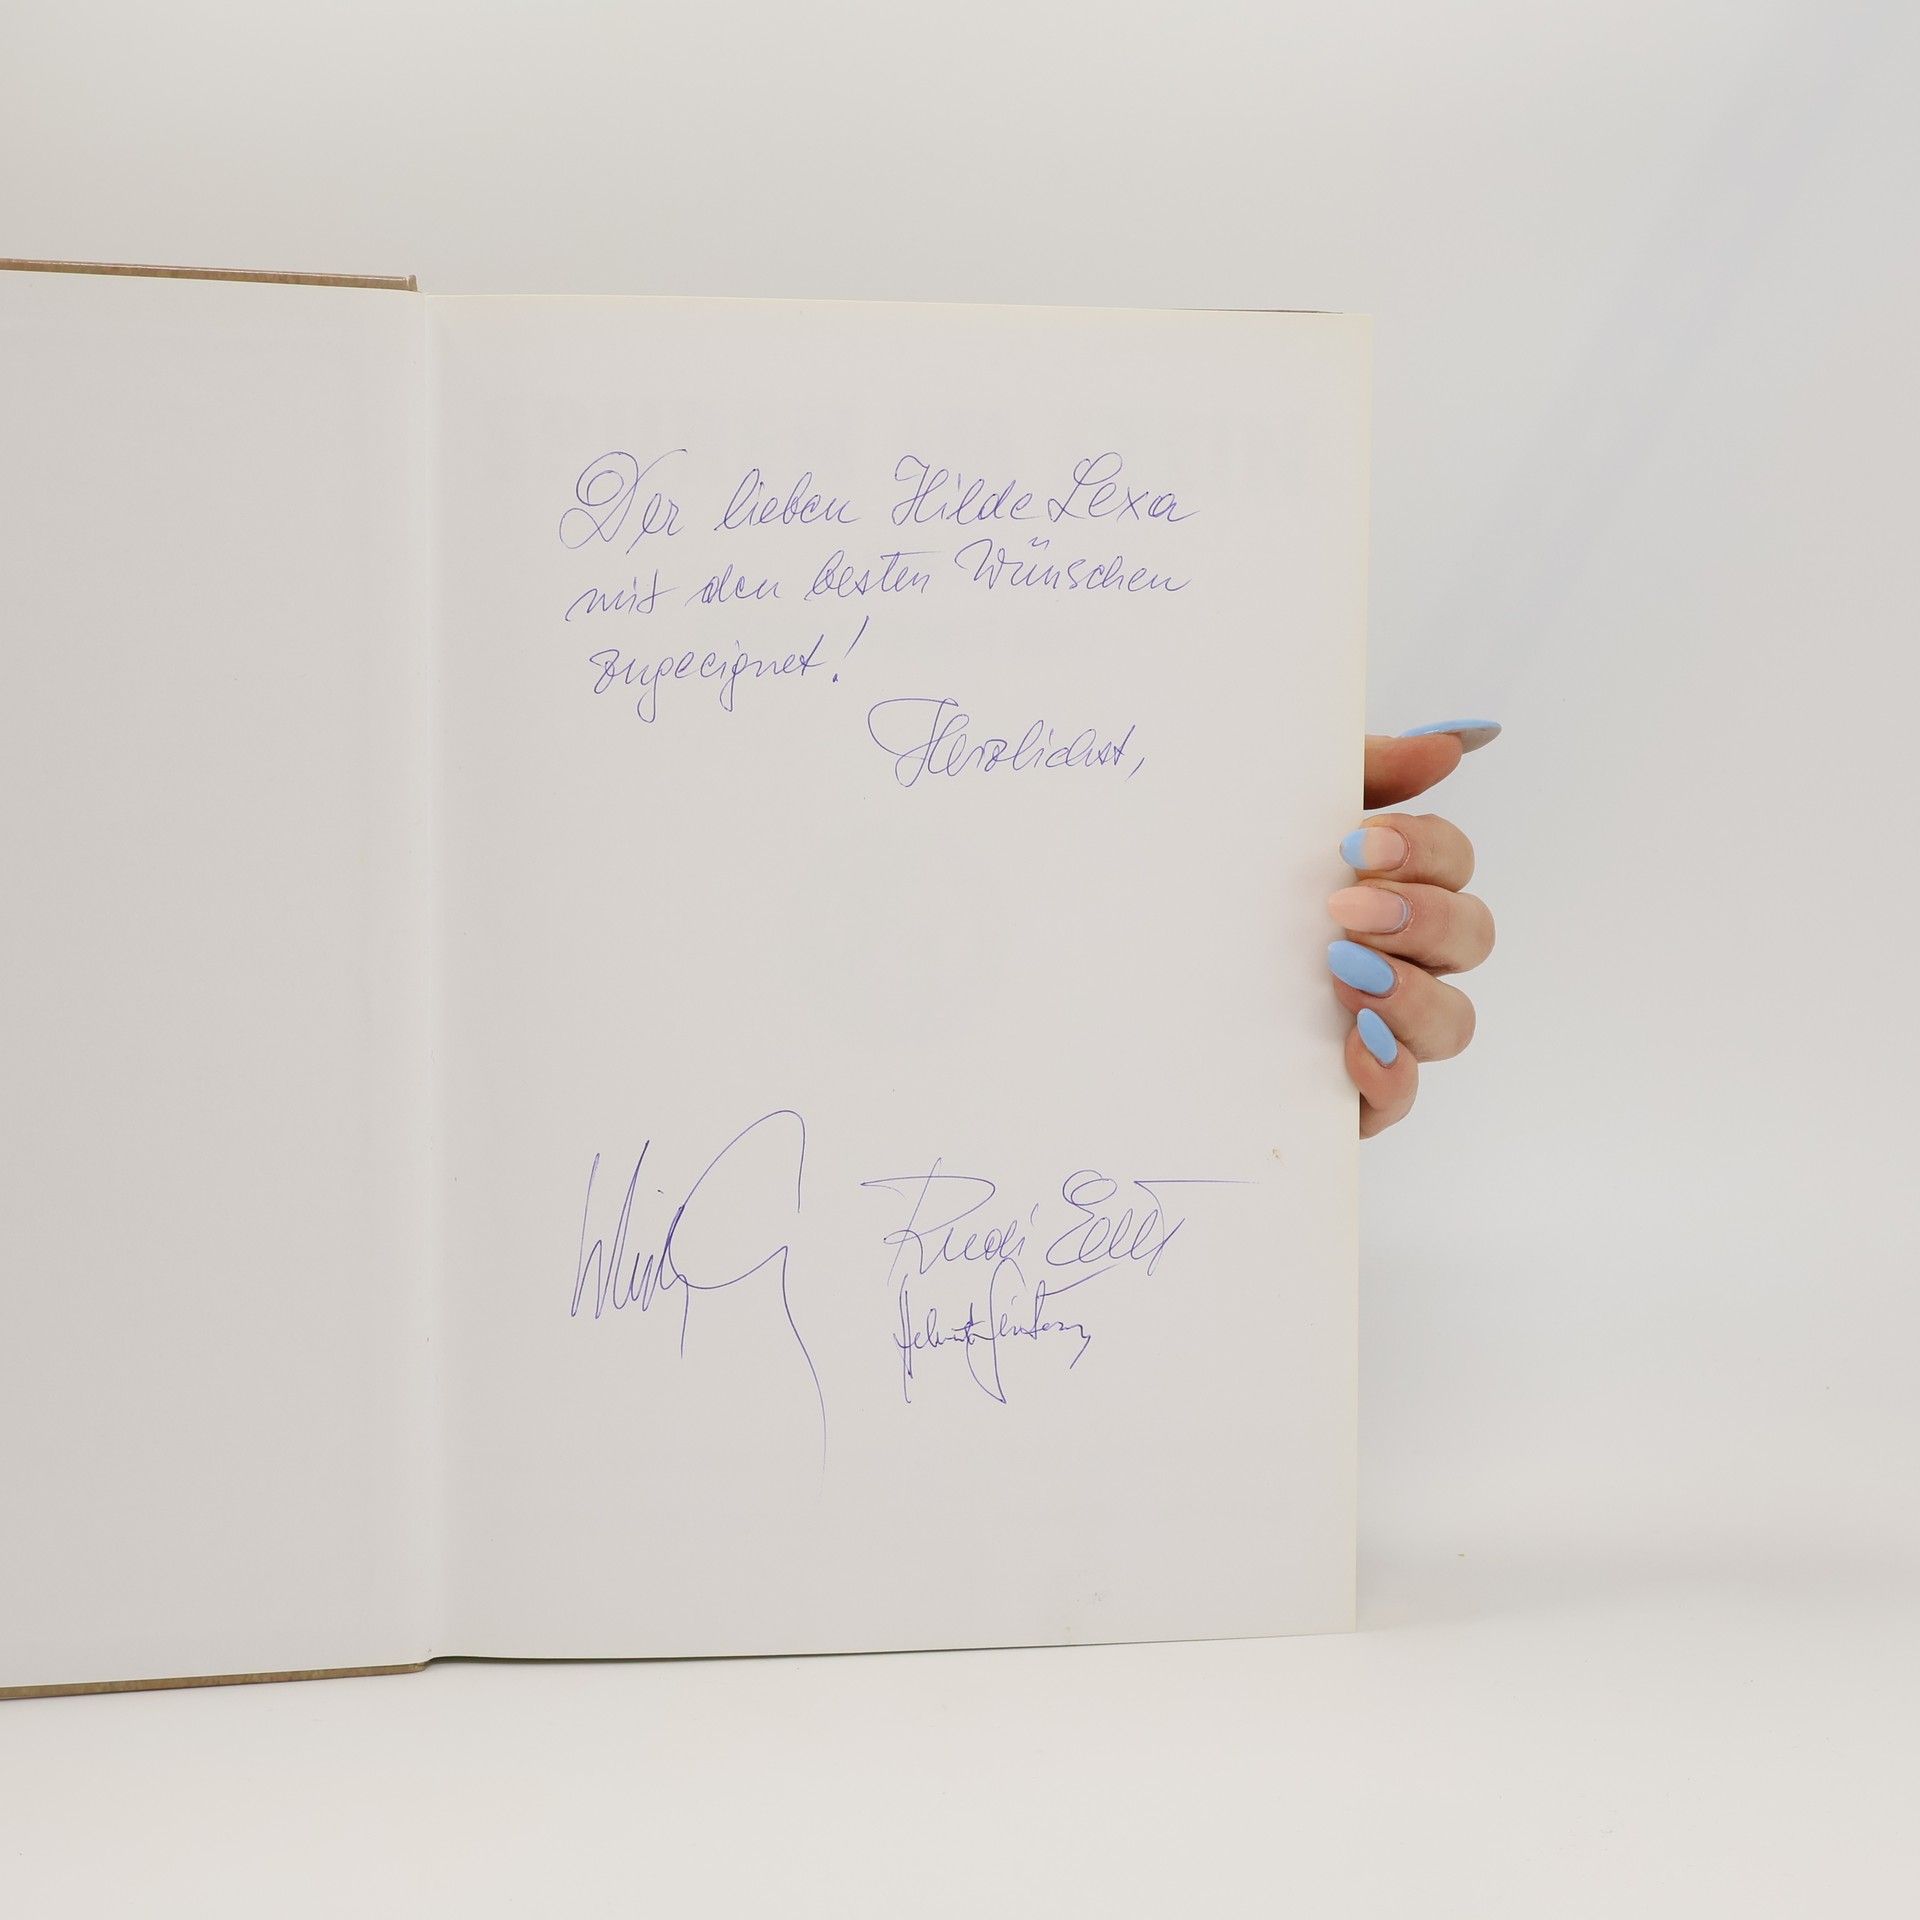 Der lieben Hilde Lexa
mit den besten Wünschen
zugeeignet!
Herzlichst,
Rudi
Helmut